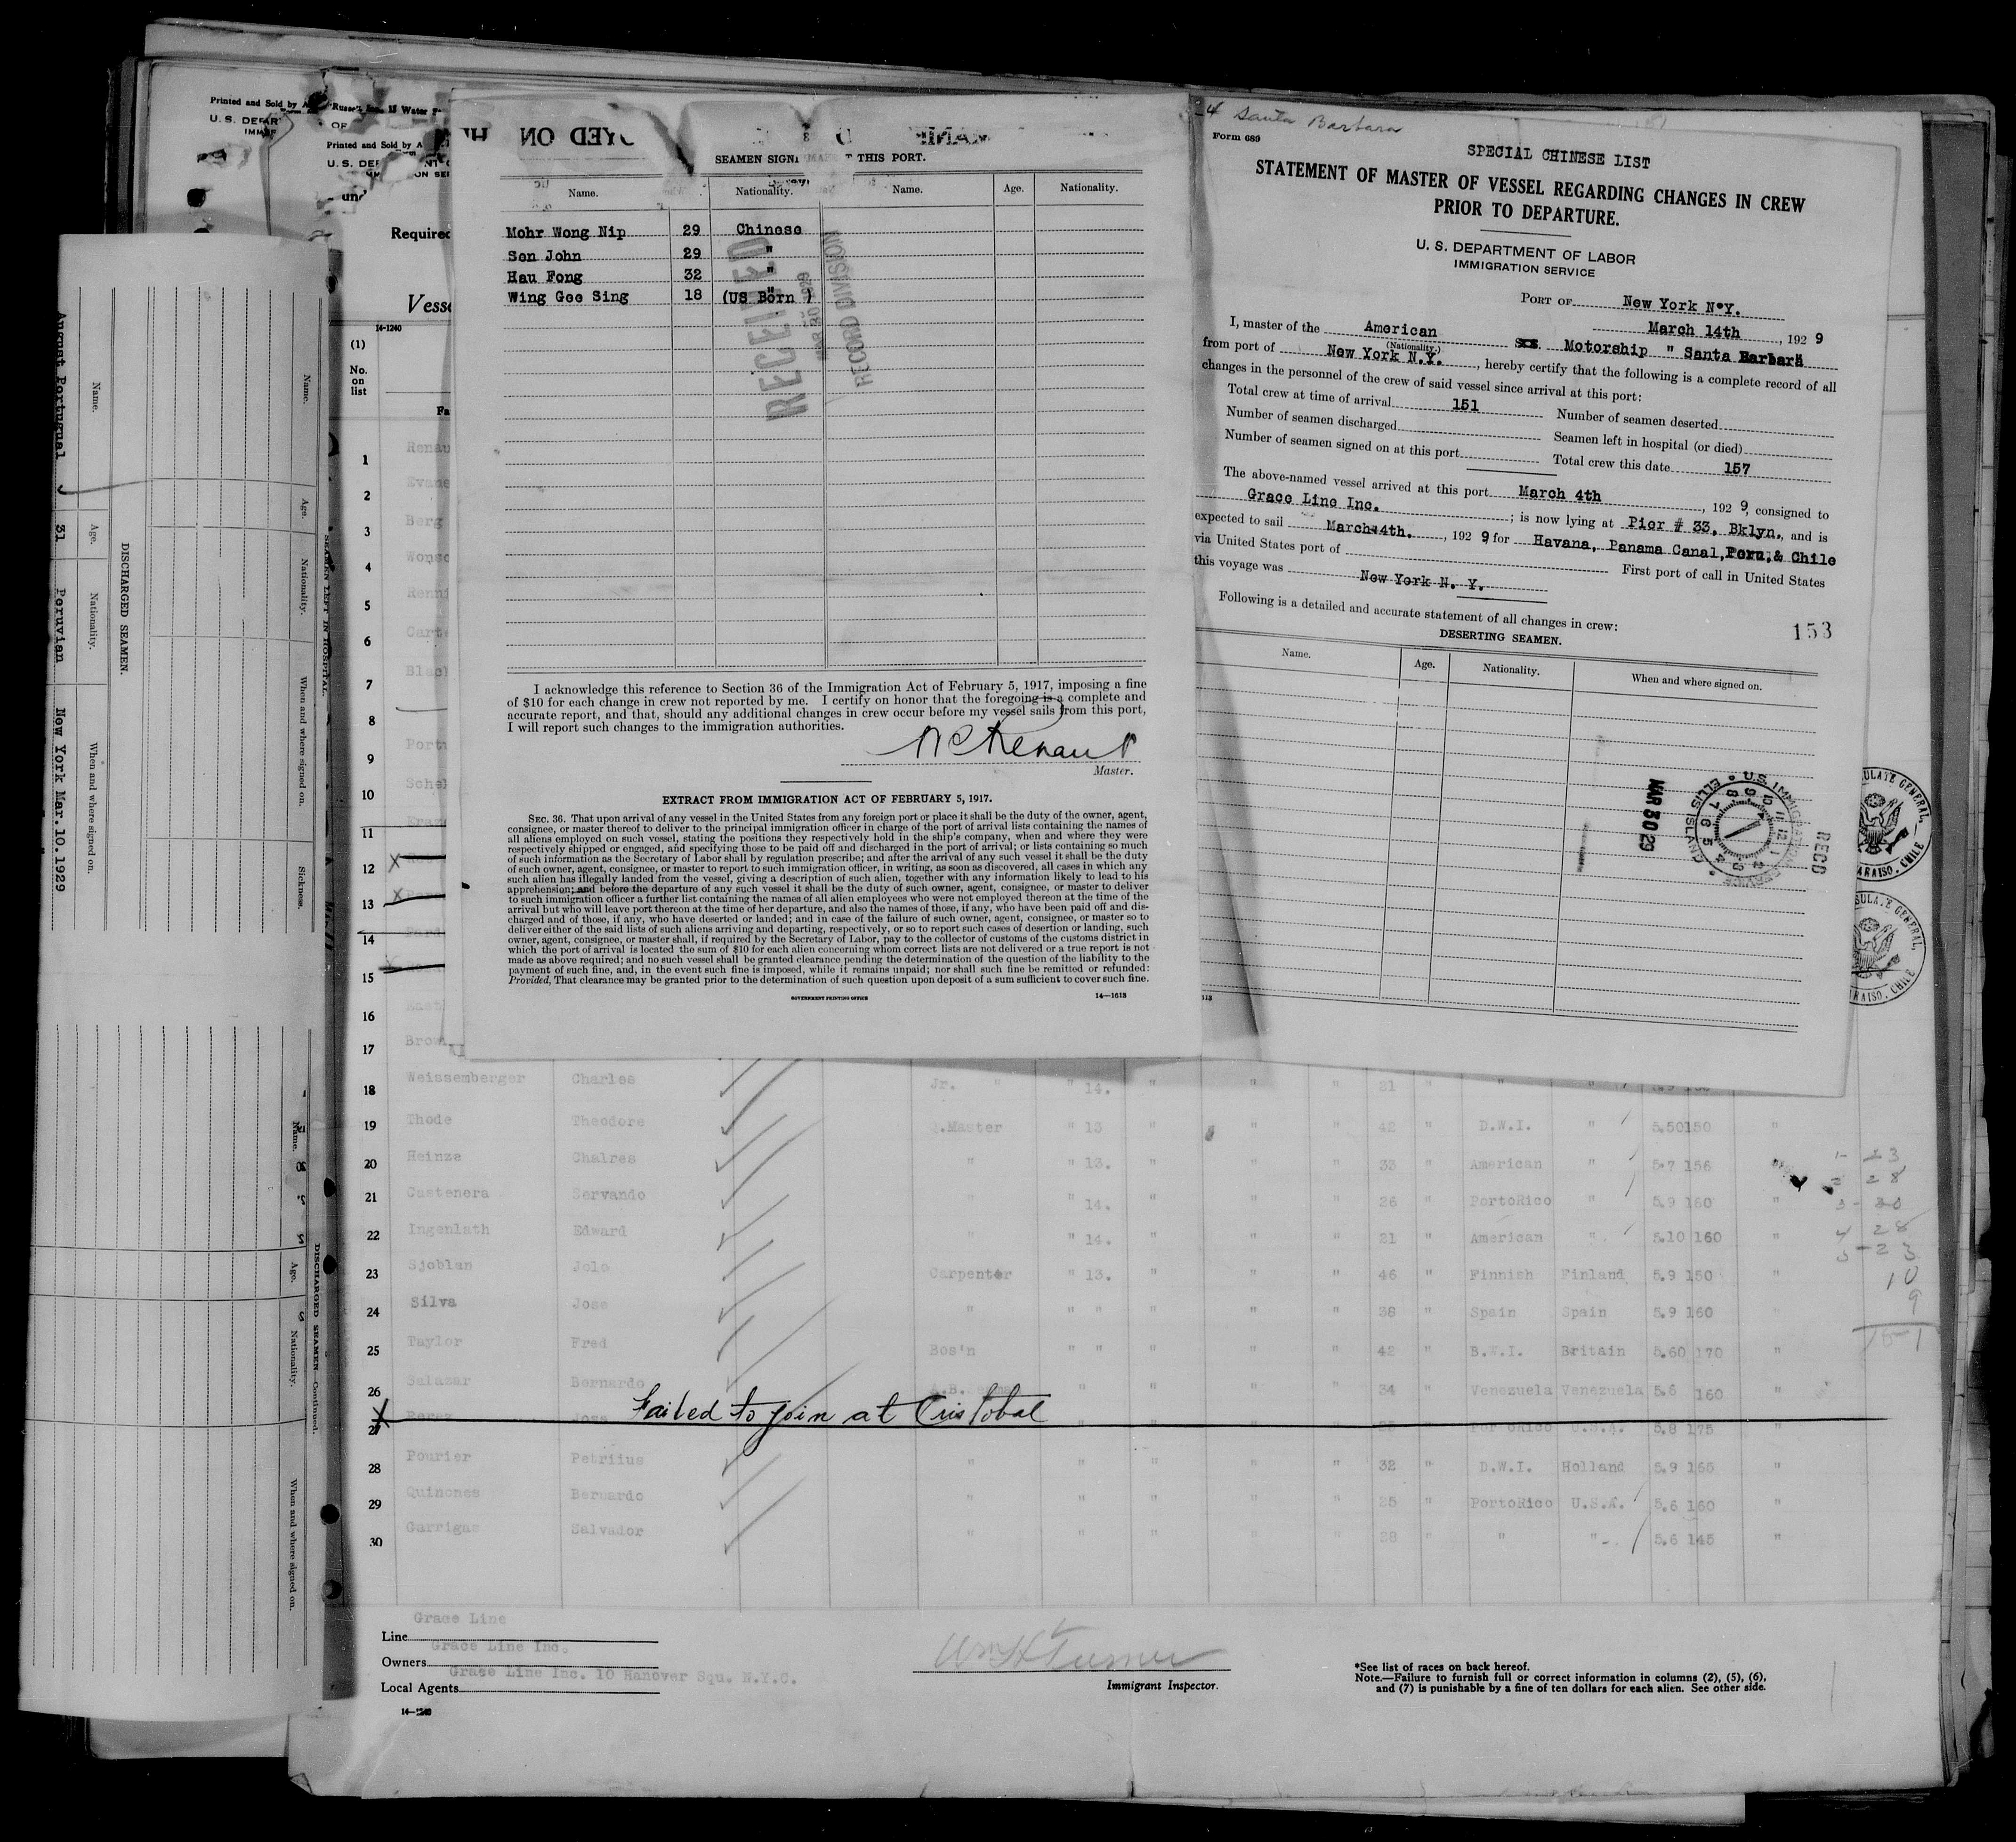 Printed and Sold by
U. S. DEPAR
IMM
Printed and Sold by A
U. S. DE
Required
Vesse
14-1240
(1)
No.
on
list
SEAMEN SIGN THIS PORT.
Name. Nationality. Name. Age. Nationality.
Mohr Wong Nip 29 Chinese
Sen John 29 "
Hau Fong 32 "
Wing Gee Sing 18 (US Born )
RECEIVED
RECORD DIVISION
I acknowledge this reference to Section 36 of the Immigration Act of February 5, 1917, imposing a fine
of $10 for each change in crew not reported by me. I certify on honor that the foregoing is a complete and
accurate report, and that, should any additional changes in crew occur before my vessel sails from this port,
I will report such changes to the immigration authorities.
Master.
EXTRACT FROM IMMIGRATION ACT OF FEBRUARY 5, 1917.
SEC. 36. That upon arrival of any vessel in the United States from any foreign port or place it shall be the duty of the owner, agent,
consignee, or master thereof to deliver to the principal immigration officer in charge of the port of arrival lists containing the names of
all aliens employed on such vessel, stating the positions they respectively hold in the ship's company, when and where they were
respectively shipped or engaged, and specifying those to be paid off and discharged in the port of arrival; or lists containing so much
of such information as the Secretary of Labor shall by regulation prescribe; and after the arrival of any such vessel it shall be the duty
of such owner, agent, consignee, or master to report to such immigration officer, in writing, as soon as discovered, all cases in which any
such alien has illegally landed from the vessel, giving a description of such alien, together with any information likely to lead to his
apprehension; and before the departure of any such vessel it shall be the duty of such owner, agent, consignee, or master to deliver
to such immigration officer a further list containing the names of all alien employees who were not employed thereon at the time of the
arrival but who will leave port thereon at the time of her departure, and also the names of those, if any, who have been paid off and dis-
charged and of those, if any, who have deserted or landed; and in case of the failure of such owner, agent, consignee, or master so to
deliver either of the said lists of such aliens arriving and departing, respectively, or so to report such cases of desertion or landing, such
owner, agent, consignee, or master shall, if required by the Secretary of Labor, pay to the collector of customs of the customs district in
which the port of arrival is located the sum of $10 for each alien concerning whom correct lists are not delivered or a true report is not
made as above required; and no such vessel shall be granted clearance pending the determination of the question of the liability to the
payment of such fine, and, in the event such fine is imposed, while it remains unpaid; nor shall such fine be remitted or refunded:
Provided, That clearance may be granted prior to the determination of such question upon deposit of a sum sufficient to cover such fine.
GOVERNMENT PRINTING OFFICE 14—1613
Santa Barbara
Form 689
SPECIAL CHINESE LIST
STATEMENT OF MASTER OF VESSEL REGARDING CHANGES IN CREW
PRIOR TO DEPARTURE.
U. S. DEPARTMENT OF LABOR
IMMIGRATION SERVICE
PORT OF New York N.Y.
March 14th, 1929
I, master of the American Motorship " Santa Barbara
(Nationality.)
from port of New York N.Y., hereby certify that the following is a complete record of all
changes in the personnel of the crew of said vessel since arrival at this port:
Total crew at time of arrival 151 Number of seamen deserted
Number of seamen discharged Seamen left in hospital (or died)
Number of seamen signed on at this port Total crew this date 157
The above-named vessel arrived at this port March 4th, 1929, consigned to
Grace Line Inc.; is now lying at Pier # 33, Bklyn., and is
expected to sail March 14th., 1929 for Havana, Panama Canal, Peru, & Chile
via United States port of First port of call in United States
this voyage was New York N. Y.
Following is a detailed and accurate statement of all changes in crew:
153
DESERTING SEAMEN.
Name. Age. Nationality. When and where signed on.
MAR 30 29
REC'D
U.S. IMMIGRATION SERVICE ELLIS ISLAND
SULATE GENERAL,
ARAISO, CHILE
SULATE GENERAL,
RAISO, CHILE
August Portugual 31 Peruvian New York Mar.10.1929
Name. Age. Nationality. When and where signed on.
DISCHARGED SEAMEN.
SEAMEN LEFT IN HOSPITAL.
Name. Age. Nationality. When and where signed on. Sickness.
DISCHARGED SEAMEN—Continued.
Name. Age. Nationality. When and where signed on.
1
2
3
4
5
6
7
8
9
10
11
12
13
14
15
16
17
18 Weissemberger Charles Jr. " " 14. " " " 21 "
19 Thode Theodore Q.Master " 13 " " " 42 " D.W.I. " 5.50 150 "
20 Heinze Chalres " " 13. " " " 33 " American " 5.7 156 "
21 Castenera Servando " " 14. " " " 26 " PortoRico " 5.9 160 "
22 Ingenlath Edward " " 14. " " " 21 " American " 5.10 160 "
23 Sjoblun Jolo Carpenter " 13. " " " 46 " Finnish Finland 5.9 150 "
24 Silva Jose " " " " " " 38 " Spain Spain 5.9 160
25 Taylor Fred Bos'n " " " " " 42 " B.W.I. Britain 5.60 170 "
26 Salazar Bernardo A.B. " " " " 34 " Venezuela Venezuela 5.6 160 "
27 Perez Jose Failed to join at Cristobal U.S.A. 5.8 175
28 Pourier Petrilus " " " " " 32 " D.W.I. Holland 5.9 165 "
29 Quinones Bernardo " " " " " 25 " PortoRico U.S.A. 5.6 160 "
30 Garrigas Salvador " " " " " 28 " " " 5.6 145 "
Grace Line
Line
Grace Line Inc.
Owners
Grace Line Inc. 10 Hanover Squ. N.Y.C.
Local Agents
14—1240
Wm H Turner
Immigrant Inspector.
*See list of races on back hereof.
Note.—Failure to furnish full or correct information in columns (2), (5), (6),
and (7) is punishable by a fine of ten dollars for each alien. See other side.